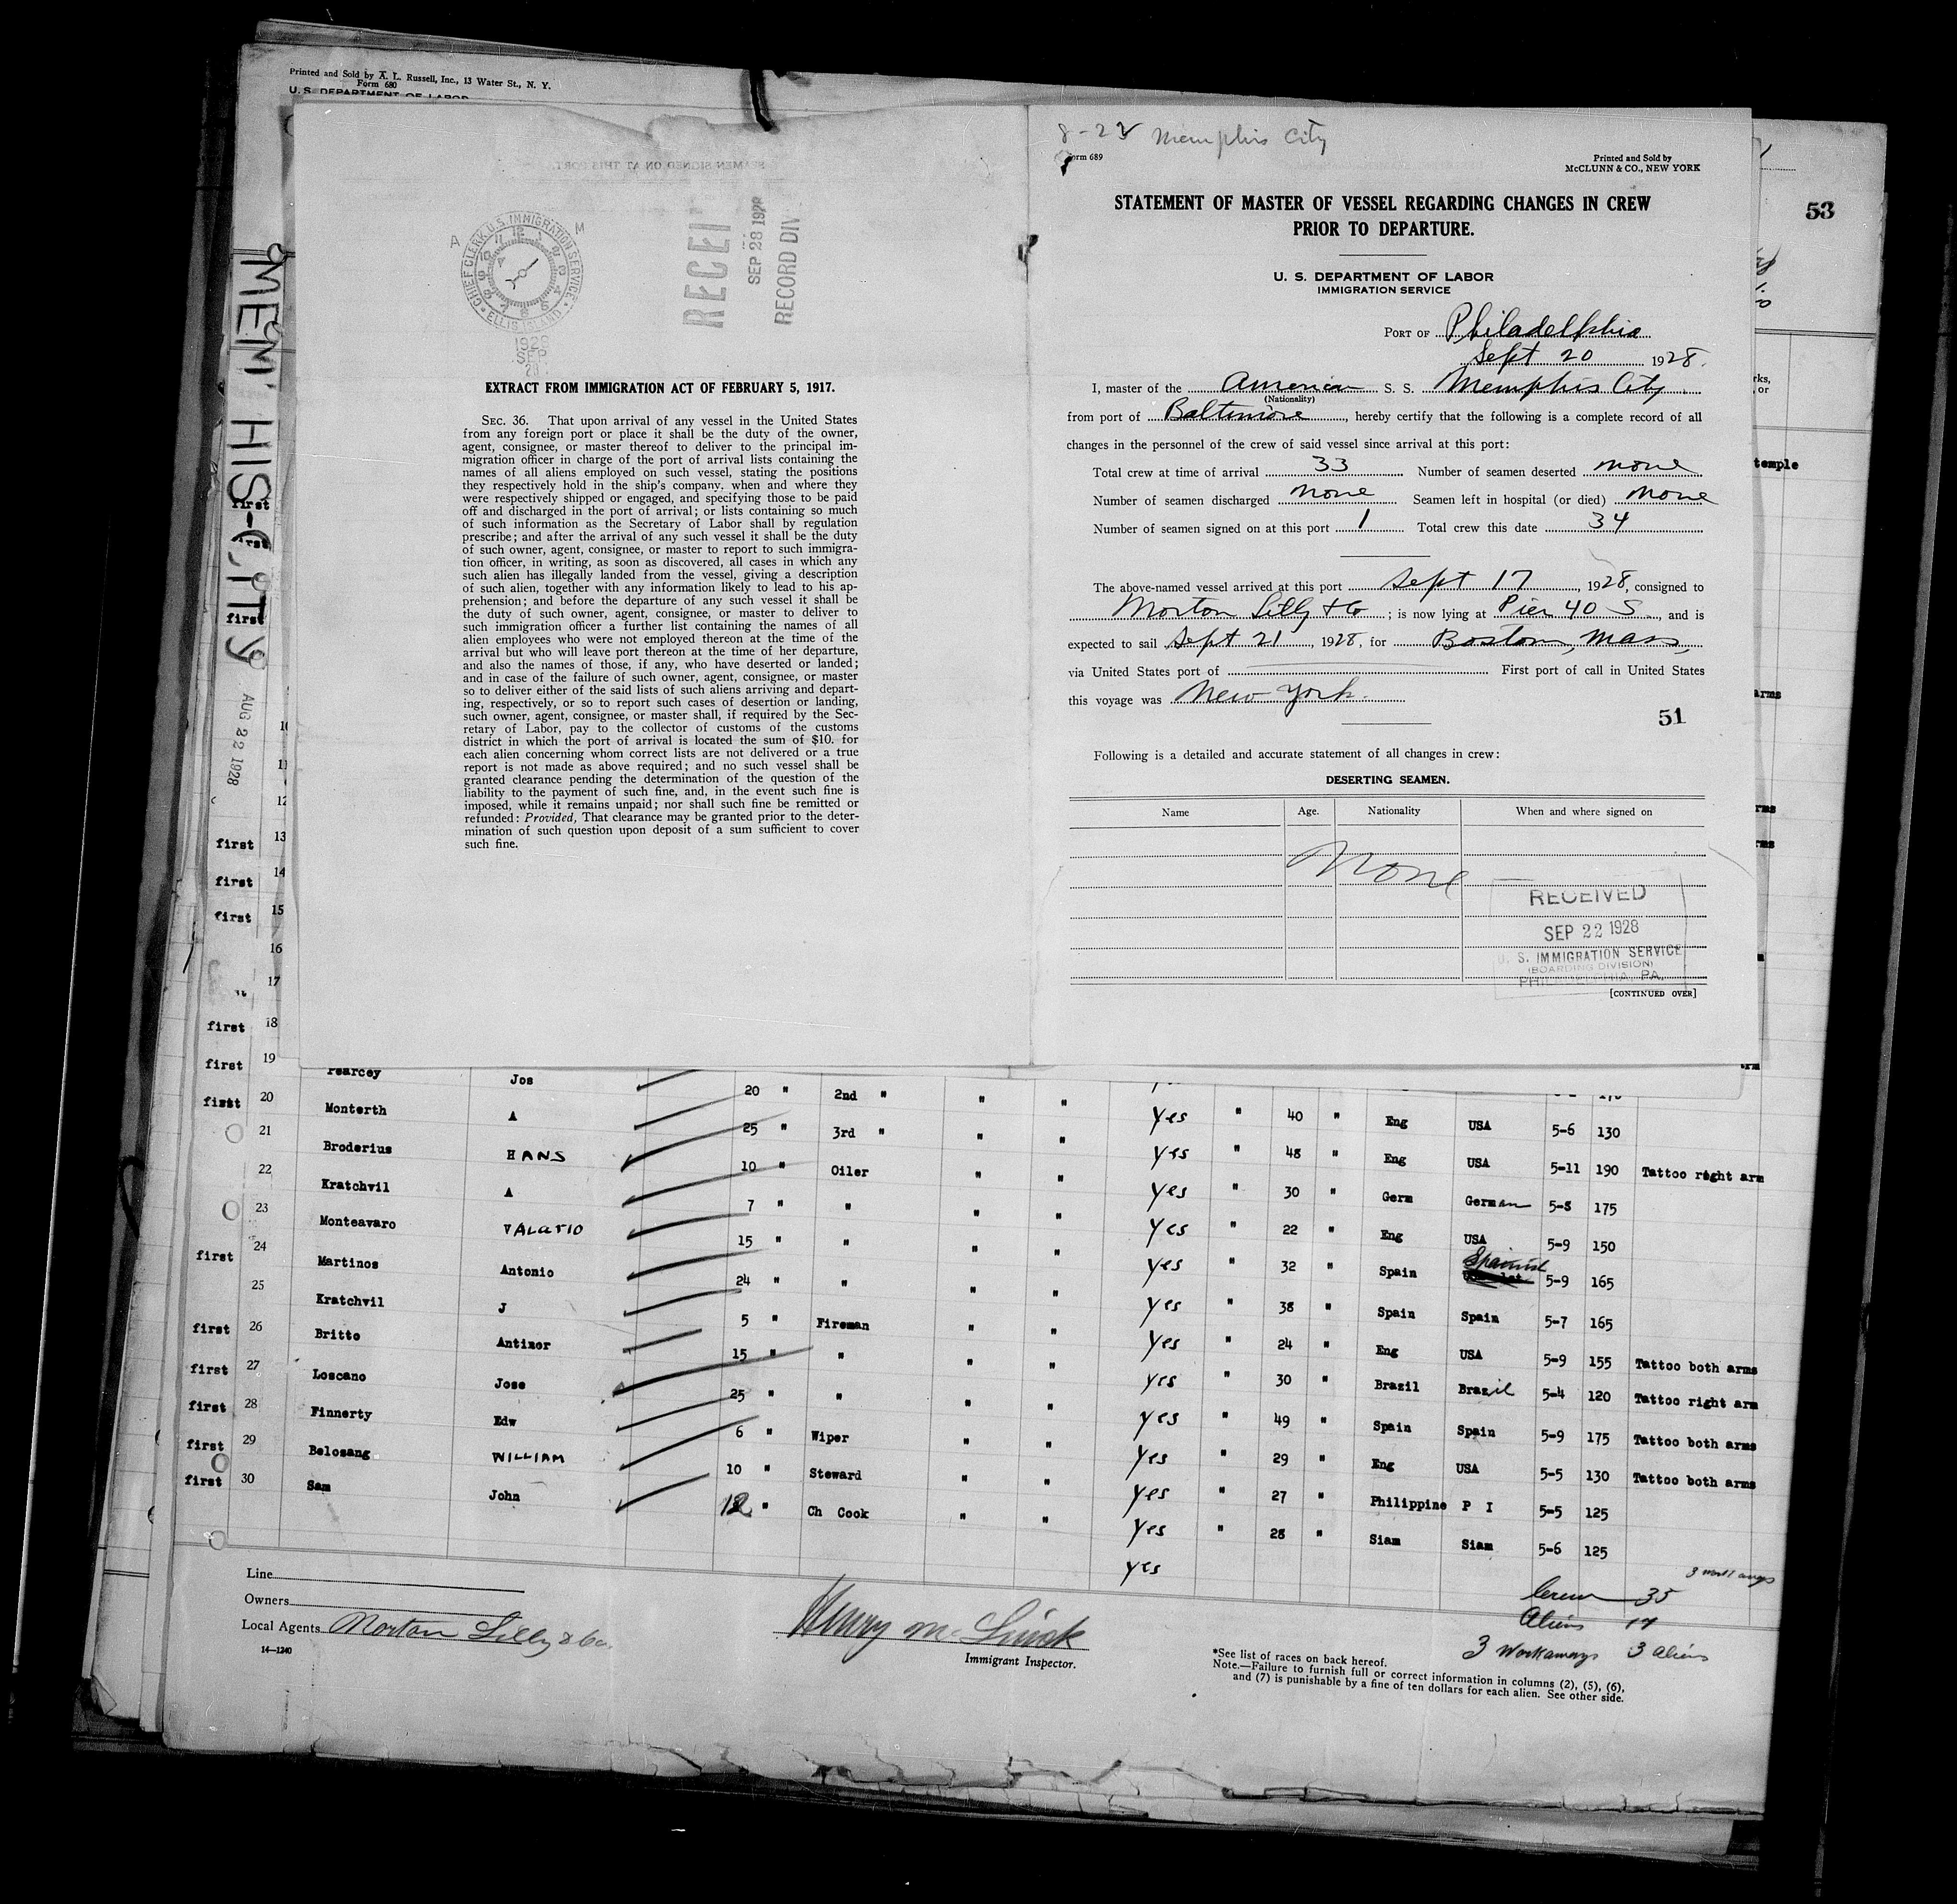 Printed and Sold by A. L. Russell, Inc., 13 Water St., N. Y.
Form 680
U. S. DEPARTMENT OF LABOR
53
MEMPHIS-CITY
AUG 22 1928
CHIEF CLERK U.S. IMMIGRATION SERVICE
ELLIS ISLAND
A M
1928
SEP
28
SEP 28 1928
RECORD DIV
EXTRACT FROM IMMIGRATION ACT OF FEBRUARY 5, 1917.
SEC. 36. That upon arrival of any vessel in the United States
from any foreign port or place it shall be the duty of the owner,
agent, consignee, or master thereof to deliver to the principal im-
migration officer in charge of the port of arrival lists containing the
names of all aliens employed on such vessel, stating the positions
they respectively hold in the ship's company, when and where they
were respectively shipped or engaged, and specifying those to be paid
off and discharged in the port of arrival; or lists containing so much
of such information as the Secretary of Labor shall by regulation
prescribe; and after the arrival of any such vessel it shall be the duty
of such owner, agent, consignee, or master to report to such immigra-
tion officer, in writing, as soon as discovered, all cases in which any
such alien has illegally landed from the vessel, giving a description
of such alien, together with any information likely to lead to his ap-
prehension; and before the departure of any such vessel it shall be
the duty of such owner, agent, consignee, or master to deliver to
such immigration officer a further list containing the names of all
alien employees who were not employed thereon at the time of the
arrival but who will leave port thereon at the time of her departure,
and also the names of those, if any, who have deserted or landed;
and in case of the failure of such owner, agent, consignee, or master
so to deliver either of the said lists of such aliens arriving and depart-
ing, respectively, or so to report such cases of desertion or landing,
such owner, agent, consignee, or master shall, if required by the Sec-
retary of Labor, pay to the collector of customs of the customs
district in which the port of arrival is located the sum of $10. for
each alien concerning whom correct lists are not delivered or a true
report is not made as above required; and no such vessel shall be
granted clearance pending the determination of the question of the
liability to the payment of such fine, and, in the event such fine is
imposed, while it remains unpaid; nor shall such fine be remitted or
refunded: Provided, That clearance may be granted prior to the deter-
mination of such question upon deposit of a sum sufficient to cover
such fine.
Memphis City
Form 689
Printed and Sold by
McCLUNN & CO., NEW YORK
STATEMENT OF MASTER OF VESSEL REGARDING CHANGES IN CREW
PRIOR TO DEPARTURE.
U. S. DEPARTMENT OF LABOR
IMMIGRATION SERVICE
PORT OF Philadelphia
Sept 20 1928.
I, master of the American S. S. Memphis City
(Nationality)
from port of Baltimore, hereby certify that the following is a complete record of all
changes in the personnel of the crew of said vessel since arrival at this port:
Total crew at time of arrival 33 Number of seamen deserted none
Number of seamen discharged none Seamen left in hospital (or died) none
Number of seamen signed on at this port 1 Total crew this date 34
The above-named vessel arrived at this port Sept 17, 1928, consigned to
Morton Lilly & Co; is now lying at Pier 40 S, and is
expected to sail Sept 21, 1928, for Boston, Mass,
via United States port of First port of call in United States
this voyage was New York.
51
Following is a detailed and accurate statement of all changes in crew:
DESERTING SEAMEN.
Name Age. Nationality When and where signed on
None
RECEIVED
SEP 22 1928
U. S. IMMIGRATION SERVICE
(BOARDING DIVISION)
PHILADELPHIA, PA.
[CONTINUED OVER]
temple
first 13
first 14
first 15
16
17
first 18
first 19 Pearcey Jos 20 " 2nd " " " yes " 40 " Eng USA 5-6 130
first 20 Monterth A 25 " 3rd " " " yes " 48 " Eng USA 5-11 190 Tattoo right arm
21 Broderius HANS 10 " Oiler " " yes " 30 " Germ German 5-8 175
22 Kratchvil A 7 " " " " yes " 22 " Eng USA 5-9 150
23 Monteavaro VALARIO 15 " " " " yes " 32 " Spain Spanish 5-9 165
first 24 Martinos Antonio 24 " " " " yes " 38 " Spain Spain 5-7 165
25 Kratchvil J 5 " Fireman " " yes " 24 " Eng USA 5-9 155 Tattoo both arms
first 26 Britto Antimor 15 " " " " yes " 30 " Brazil Brazil 5-4 120 Tattoo right arm
first 27 Loscano Jose 25 " " " " yes " 49 " Spain Spain 5-9 175 Tattoo both arms
first 28 Finnerty Edw 6 " Wiper " " yes " 29 " Eng USA 5-5 130 Tattoo both arms
first 29 Belosang WILLIAM 10 " Steward " " yes " 27 " Philippine P I 5-5 125
first 30 Sam John 12 " Ch Cook " " yes " 28 " Siam Siam 5-6 125
yes
3 workaways
Line
Crew 35
Owners
Aliens 17
Local Agents Morton Lilly & Co.
3 Workaways 3 aliens
14—1240
Immigrant Inspector.
*See list of races on back hereof.
Note.—Failure to furnish full or correct information in columns (2), (5), (6),
and (7) is punishable by a fine of ten dollars for each alien. See other side.